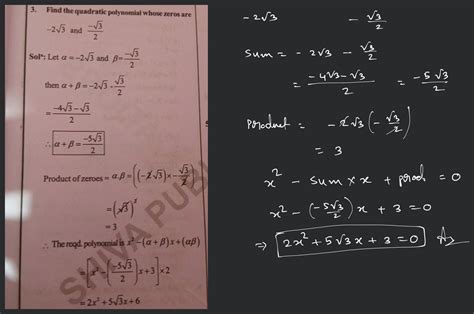 3. Find the quadratic polynomial whose zeros are
-2√3 and -√3/2
Solⁿ: Let α = -2√3 and β = -√3/2
then α + β = -2√3 - √3/2
= -4√3-√3/2
∴ α + β = -5√3/2
Product of zeroes = α.β = ((-2√3)×-√3/2)
= (√3)²
= 3
∴ The reqd. polynomial is x² - (α + β)x + (αβ)
= [x² - (-5√3/2)x + 3] × 2
= 2x² + 5√3x + 6
SHIVA PUBL
-2√3 -√3/2
Sum = -2√3 - √3/2
= -4√3-√3/2 = -5√3/2
Product = -2√3(-√3/2)
= 3
x² - Sum × x + prod = 0
x² - (-5√3/2)x + 3 = 0
⇒ 2x² + 5√3x + 3 = 0